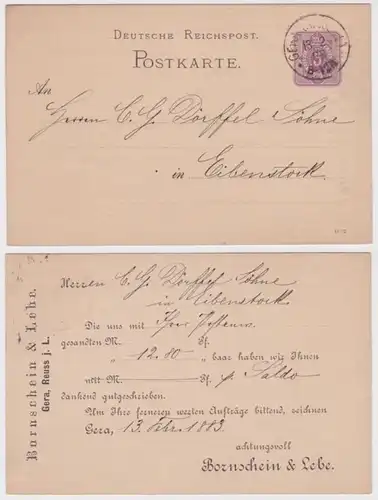 DEUTSCHE REICHSPOST.
POSTKARTE.
An
Herren C. G. Dörffel Söhne
in Eibenstock.
Bornschein & Lebe.
Gera, Reuss j. L.
Herren C. G. Dörffel Söhne
in Eibenstock
Die uns mit Ihrer
gesandten M. Pf.
„ 12.80 „ baar haben wir Ihnen
mit M. Pf. p. Saldo
dankend gutgeschrieben.
Um Ihre ferneren werten Aufträge bittend, zeichnen
Gera, 13. Febr. 1883.
achtungsvoll
Bornschein & Lebe.